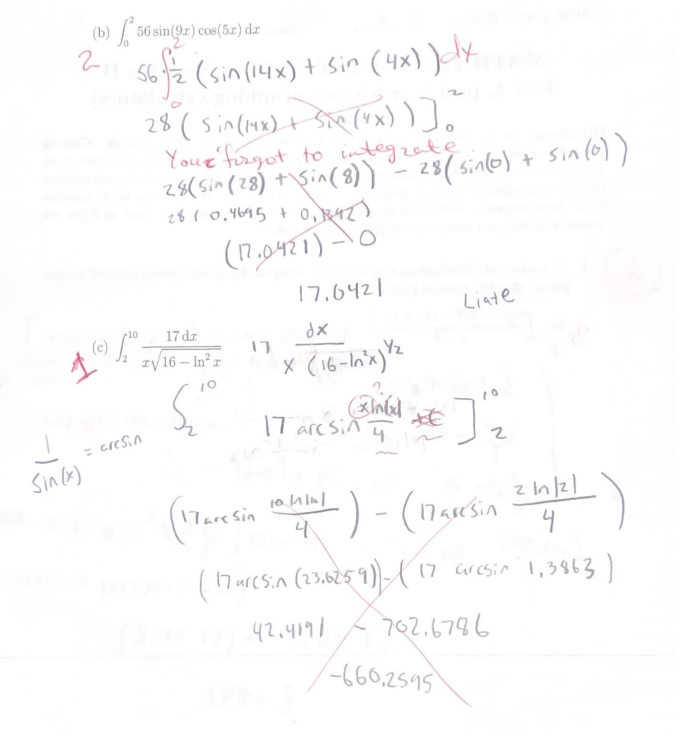 (b) ∫₀² 56 sin(9x) cos(5x) dx
2 56·∫₀² 1/2 (sin(14x) + sin(4x)) dx
28 ( sin(14x) + sin(4x) ) ]₀²
You forgot to integrate
28(sin(28) + sin(8)) - 28(sin(0) + sin(0))
28 ( 0.4695 + 0.1392 )
(17.0421) - 0
17.0421
Liate
1 (c) ∫₂¹⁰ 17 dx / x√(16 - ln² x) 17 dx / x (16-ln²x)^1/2
∫₂¹⁰ 17 arcsin x ln|x| / 4 ]₂¹⁰
?
1/sin(x) = arcsin
(17 arcsin 10 ln|10| / 4) - (17 arcsin 2 ln|2| / 4)
(17 arcsin (23.6259)) - (17 arcsin 1.3863)
42.4191 - 702.6786
-660.2595